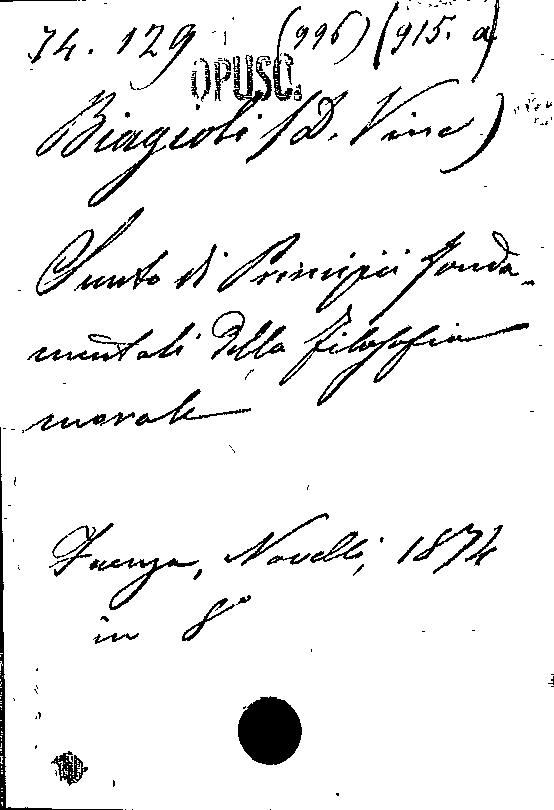 74. 129 (996) (915. a)
OPUSC.
Biagioli (D. Vinc)
Sunto di Principii fonda-
mentali della filosofia
morale
Faenza, Novelli, 1874
in 8°